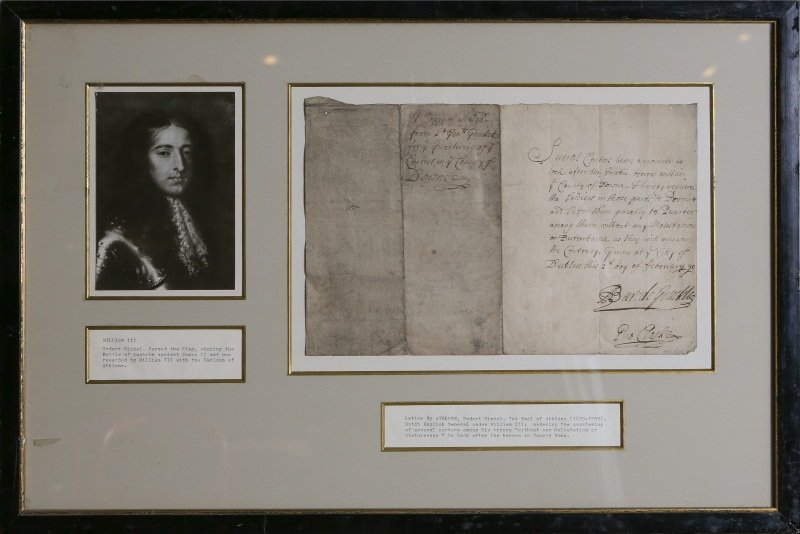 WILLIAM III
Godert Ginkel. Served the King, winning the
Battle of Aughrim against James II and was
rewarded by William III with the Earldom of
Athlone.
from Lt Genll Ginkel
for ye Quartering of ye
Caulers in ye County of
Downe
Severall being appointed to
look after the Horses within
ye County of Downe, I hereby require
the Soldiers in those parts to Permit
and Suffer them quietly to Quarter
among them without any Molestation
or Disturbance, as they will answer
the Contrary. Given at ye City of
Dublin this day of February 90
Bar: de Ginkell
Letter By ATHLONE, Godert Ginkel, 1st Earl of Athlone (1630-1703),
Dutch English General under William III: ordering the quartering
of several carters among his troops "without any Molestation or
Disturbance" to look after the horses in County Down.